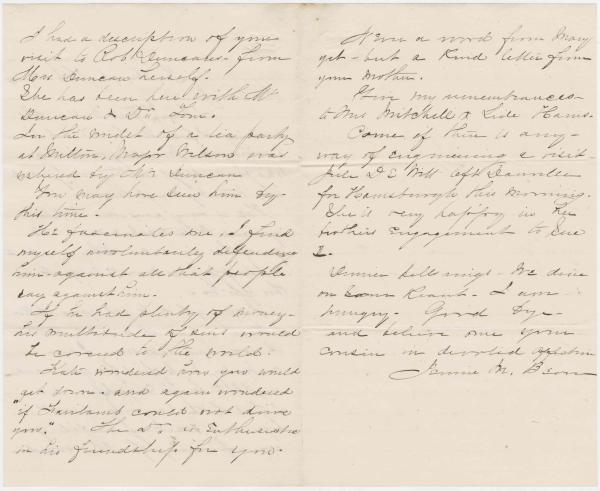 I had a description of your
visit to Robt Duncans - from
Mrs Duncan herself.
She has been here with Mr
Duncan & Dr.
In the midst of a tea party
at Milton, Major Wilson was
ushered by Mr Duncan
You may have seen him by
this time.
He fascinates me, I find
myself involuntarily defending
him against all that people
say against him.
If he had plenty of money -
his multitude of sins would
be covered to the world.
Kate wondered how you would
get down - and again wondered
"if Fairlamb could not drive
you." The Dr. is Enthusiastic
in his friendship for you.
Never a word from Mary
yet - but a kind letter from
your Mother.
Give my remembrances -
to Mrs Mitchell &
Come if there is any -
way of engineering a visit -
Julie De Witt left Danville
for Harrisburgh this morning.
She is very happy in her
brothers Engagement to Sue
Dinner bell rings - We dine
on Roast - I am
hungry. Good bye -
and believe me your
cousin in devoted affection
Jennie M.